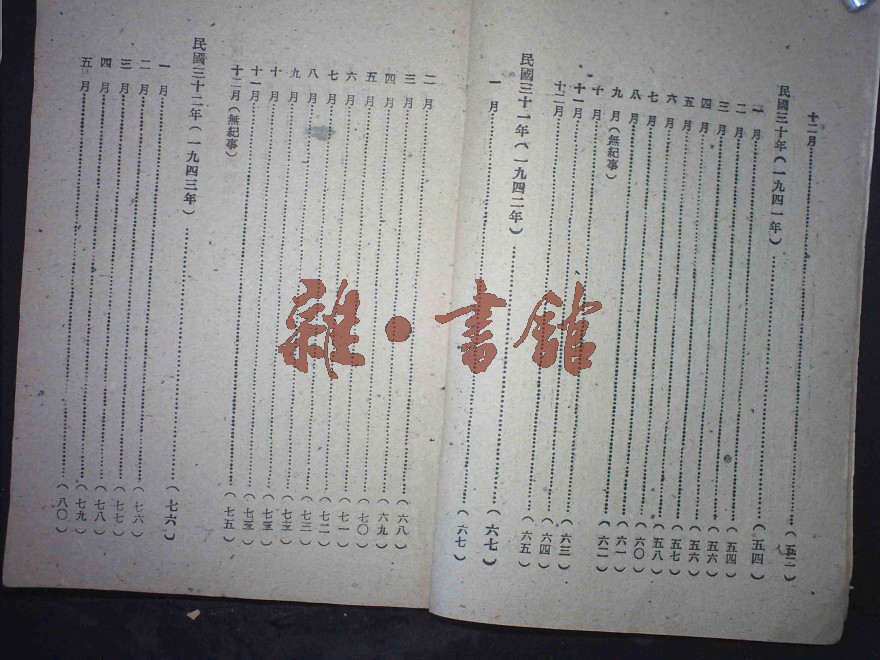 十二月……（五三）
民國三十年（一九四一年）……（五四）
一月……（五四）
二月……（五六）
三月……（五六）
四月……（五七）
五月……（五八）
六月……（六〇）
七月……（六一）
八月……（六二）
九月（無紀事）
十月……（六三）
十一月……（六四）
十二月……（六五）
民國三十一年（一九四二年）……（六七）
一月……（六七）
二月……（六八）
三月……（六九）
四月……（七〇）
五月……（七一）
六月……（七二）
七月……（七三）
八月……（七三）
九月……
十月……
十一月……（七五）
十二月（無紀事）
民國三十二年（一九四三年）……（七六）
一月……（七六）
二月……（七七）
三月……（七八）
四月……（七九）
五月……（八〇）
雜●書館